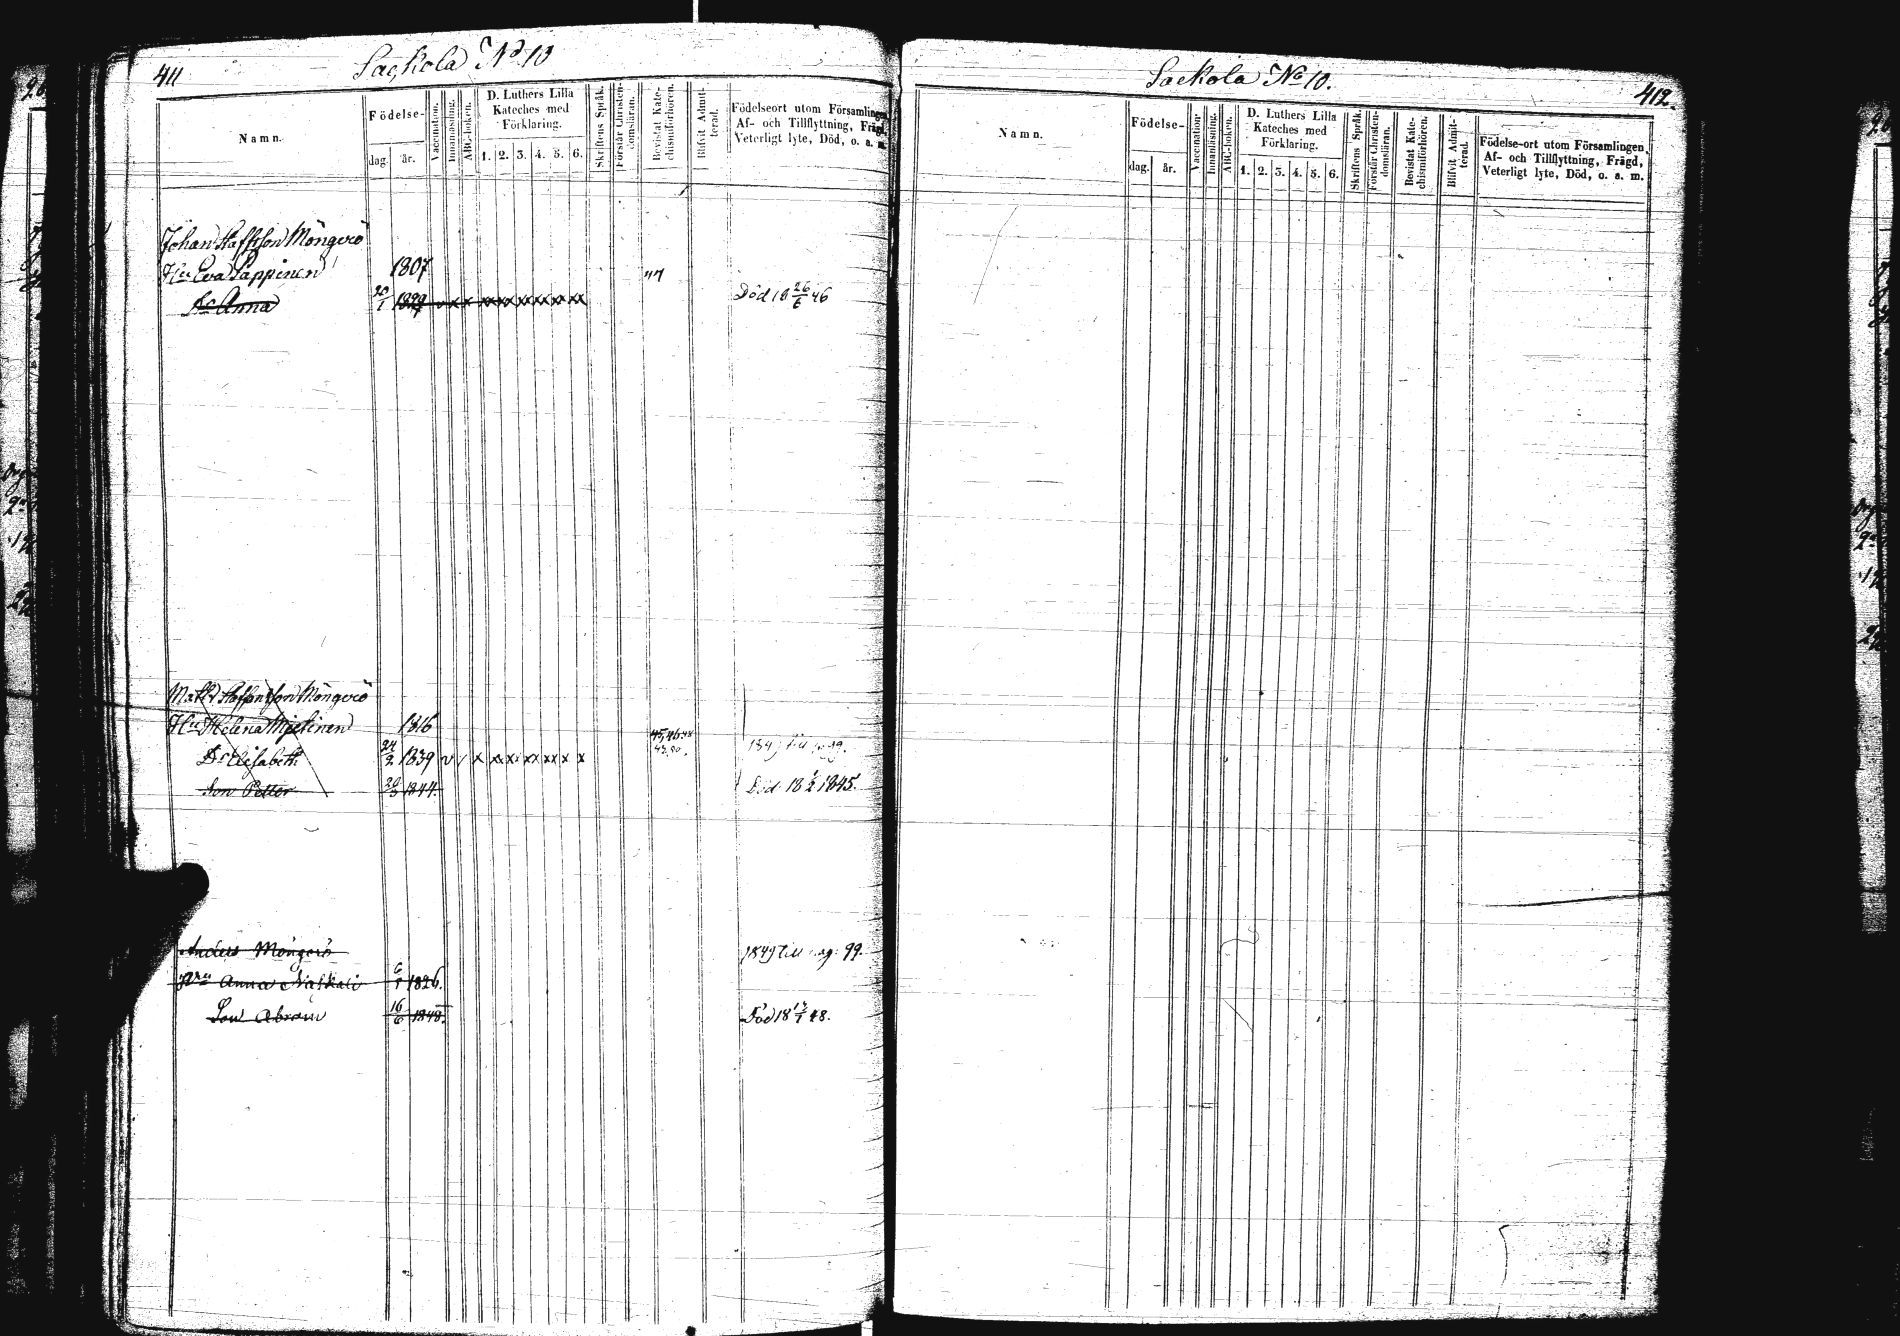 411
Sackola No 10
Namn.
Födelse-
dag.
år.
Vaccination.
Innanläsning.
ABC-boken.
D. Luthers Lilla
Kateches med
Förklaring.
1. 2. 3. 4. 5. 6.
Skriftens Språk.
Förstår Christen-
domsläran.
Bevistat Kate-
chismiförhören.
Blifvit Admit-
terad.
Födelseort utom Församlingen,
Af- och Tillflyttning, Frägd,
Veterligt lyte, Död, o. a. m.
Johan Möngerö
Hu Eva Päppinen 1807 47
Dr Anna 20/1 Död 18 26/6 46
Matts Staffansson Möngerö
Hu Helena 1816 45,46
Dr Elisabeth 24/2 1839
Son Petter 1844. Död 18 1/2 1845.
Anders Möngerö 1849 till pag. 99.
Hru Anna 6/1 1826.
Son Abram 16/6 1848. Död 18 48.
412
Sackola No 10.
Namn.
Födelse-
dag.
år.
Vaccination
Innanläsning.
ABC-boken.
D. Luthers Lilla
Kateches med
Förklaring.
1. 2. 3. 4. 5. 6.
Skriftens Språk.
Förstår Christen-
domsläran.
Bevistat Kate-
chismiförhören.
Blifvit Admit-
terad.
Födelse-ort utom Församlingen,
Af- och Tillflyttning, Frägd,
Veterligt lyte, Död, o. a. m.